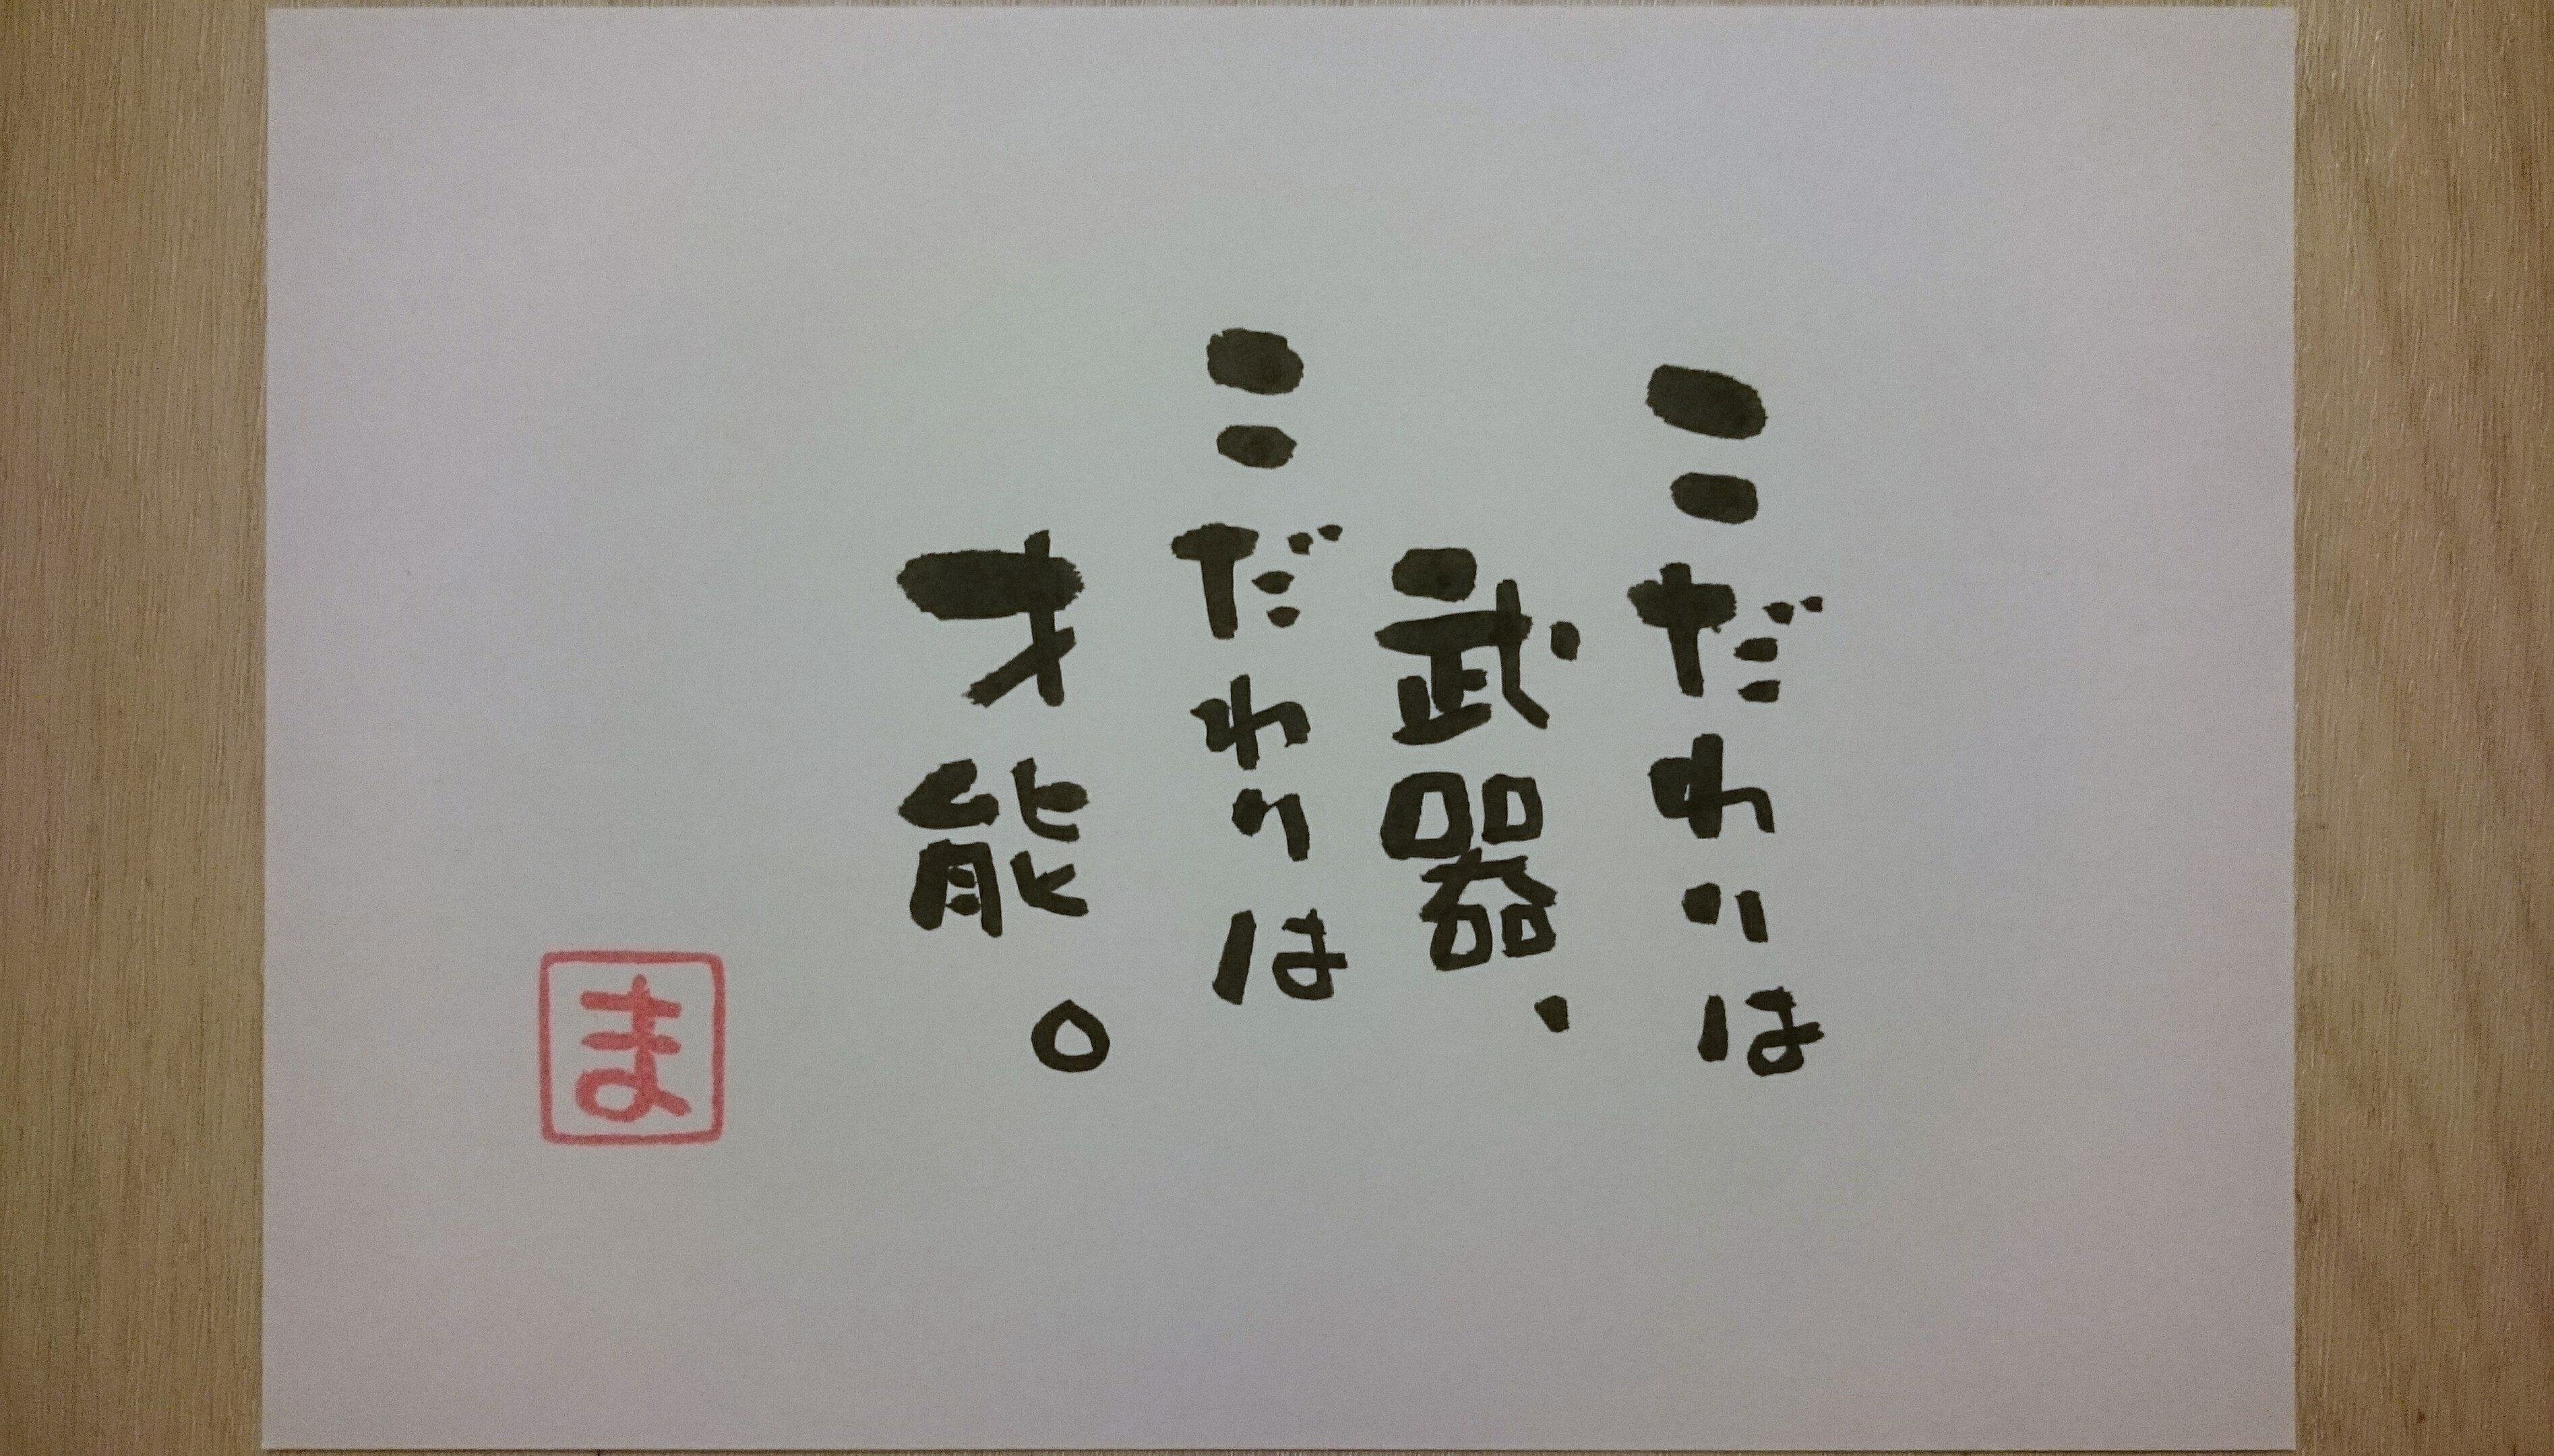 こだわりは
武器、
こだわりは
才能。
ま